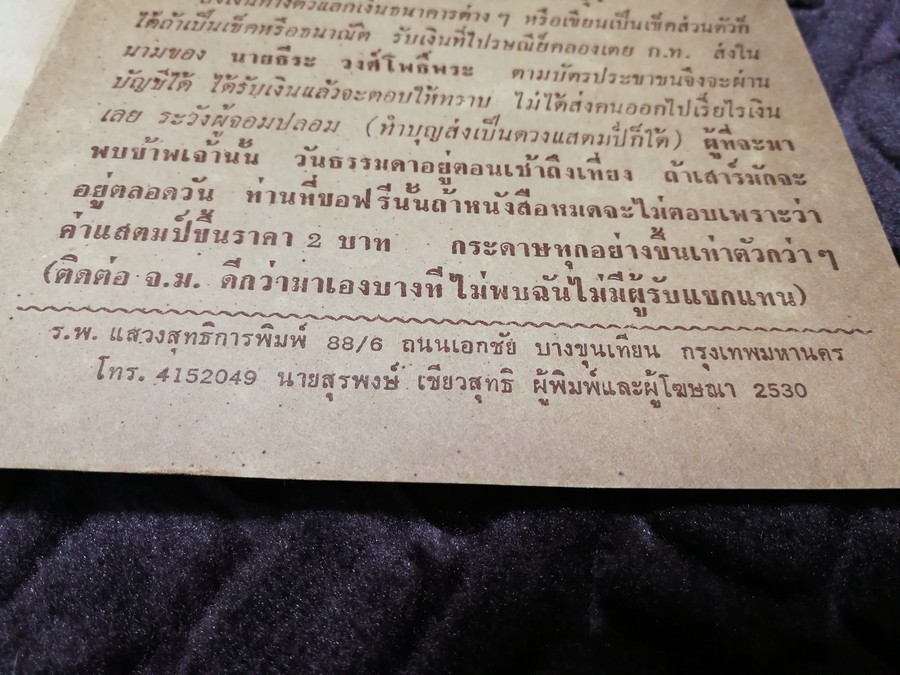 ส่งเงินทางตั๋วแลกเงินธนาคารต่าง ๆ หรือเขียนเป็นเช็คส่วนตัวก็
ได้ถ้าเป็นเช็คหรือธนาณัติ รับเงินที่ไปรษณีย์คลองเตย ก.ท. สั่งใน
นามของ นายธีระ วงศ์โพธิ์พระ ตามบัตรประชาชนจึงจะผ่าน
บัญชีได้ ได้รับเงินแล้วจะตอบให้ทราบ ไม่ได้ส่งคนออกไปเรี่ยไรเงิน
เลย ระวังผู้จอมปลอม (ทำบุญส่งเป็นดวงแสตมป์ก็ได้) ผู้ที่จะมา
พบข้าพเจ้านั้น วันธรรมดาอยู่ตอนเช้าถึงเที่ยง ถ้าเสาร์มักจะ
อยู่ตลอดวัน ท่านที่ขอฟรีนั้นถ้าหนังสือหมดจะไม่ตอบเพราะว่า
ค่าแสตมป์ขึ้นราคา 2 บาท กระดาษทุกอย่างขึ้นเท่าตัวกว่า ๆ
(ติดต่อ จ.ม. ดีกว่ามาเองบางทีไม่พบฉันไม่มีผู้รับแขกแทน)
ร.พ. แสวงสุทธิการพิมพ์ 88/6 ถนนเอกชัย บางขุนเทียน กรุงเทพมหานคร
โทร. 4152049 นายสุรพงษ์ เชียวสุทธิ ผู้พิมพ์และผู้โฆษณา 2530